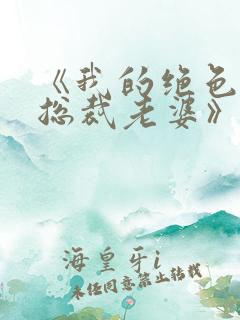 《我的绝色
总裁老婆》
海皇牙i
未经同意禁止转载